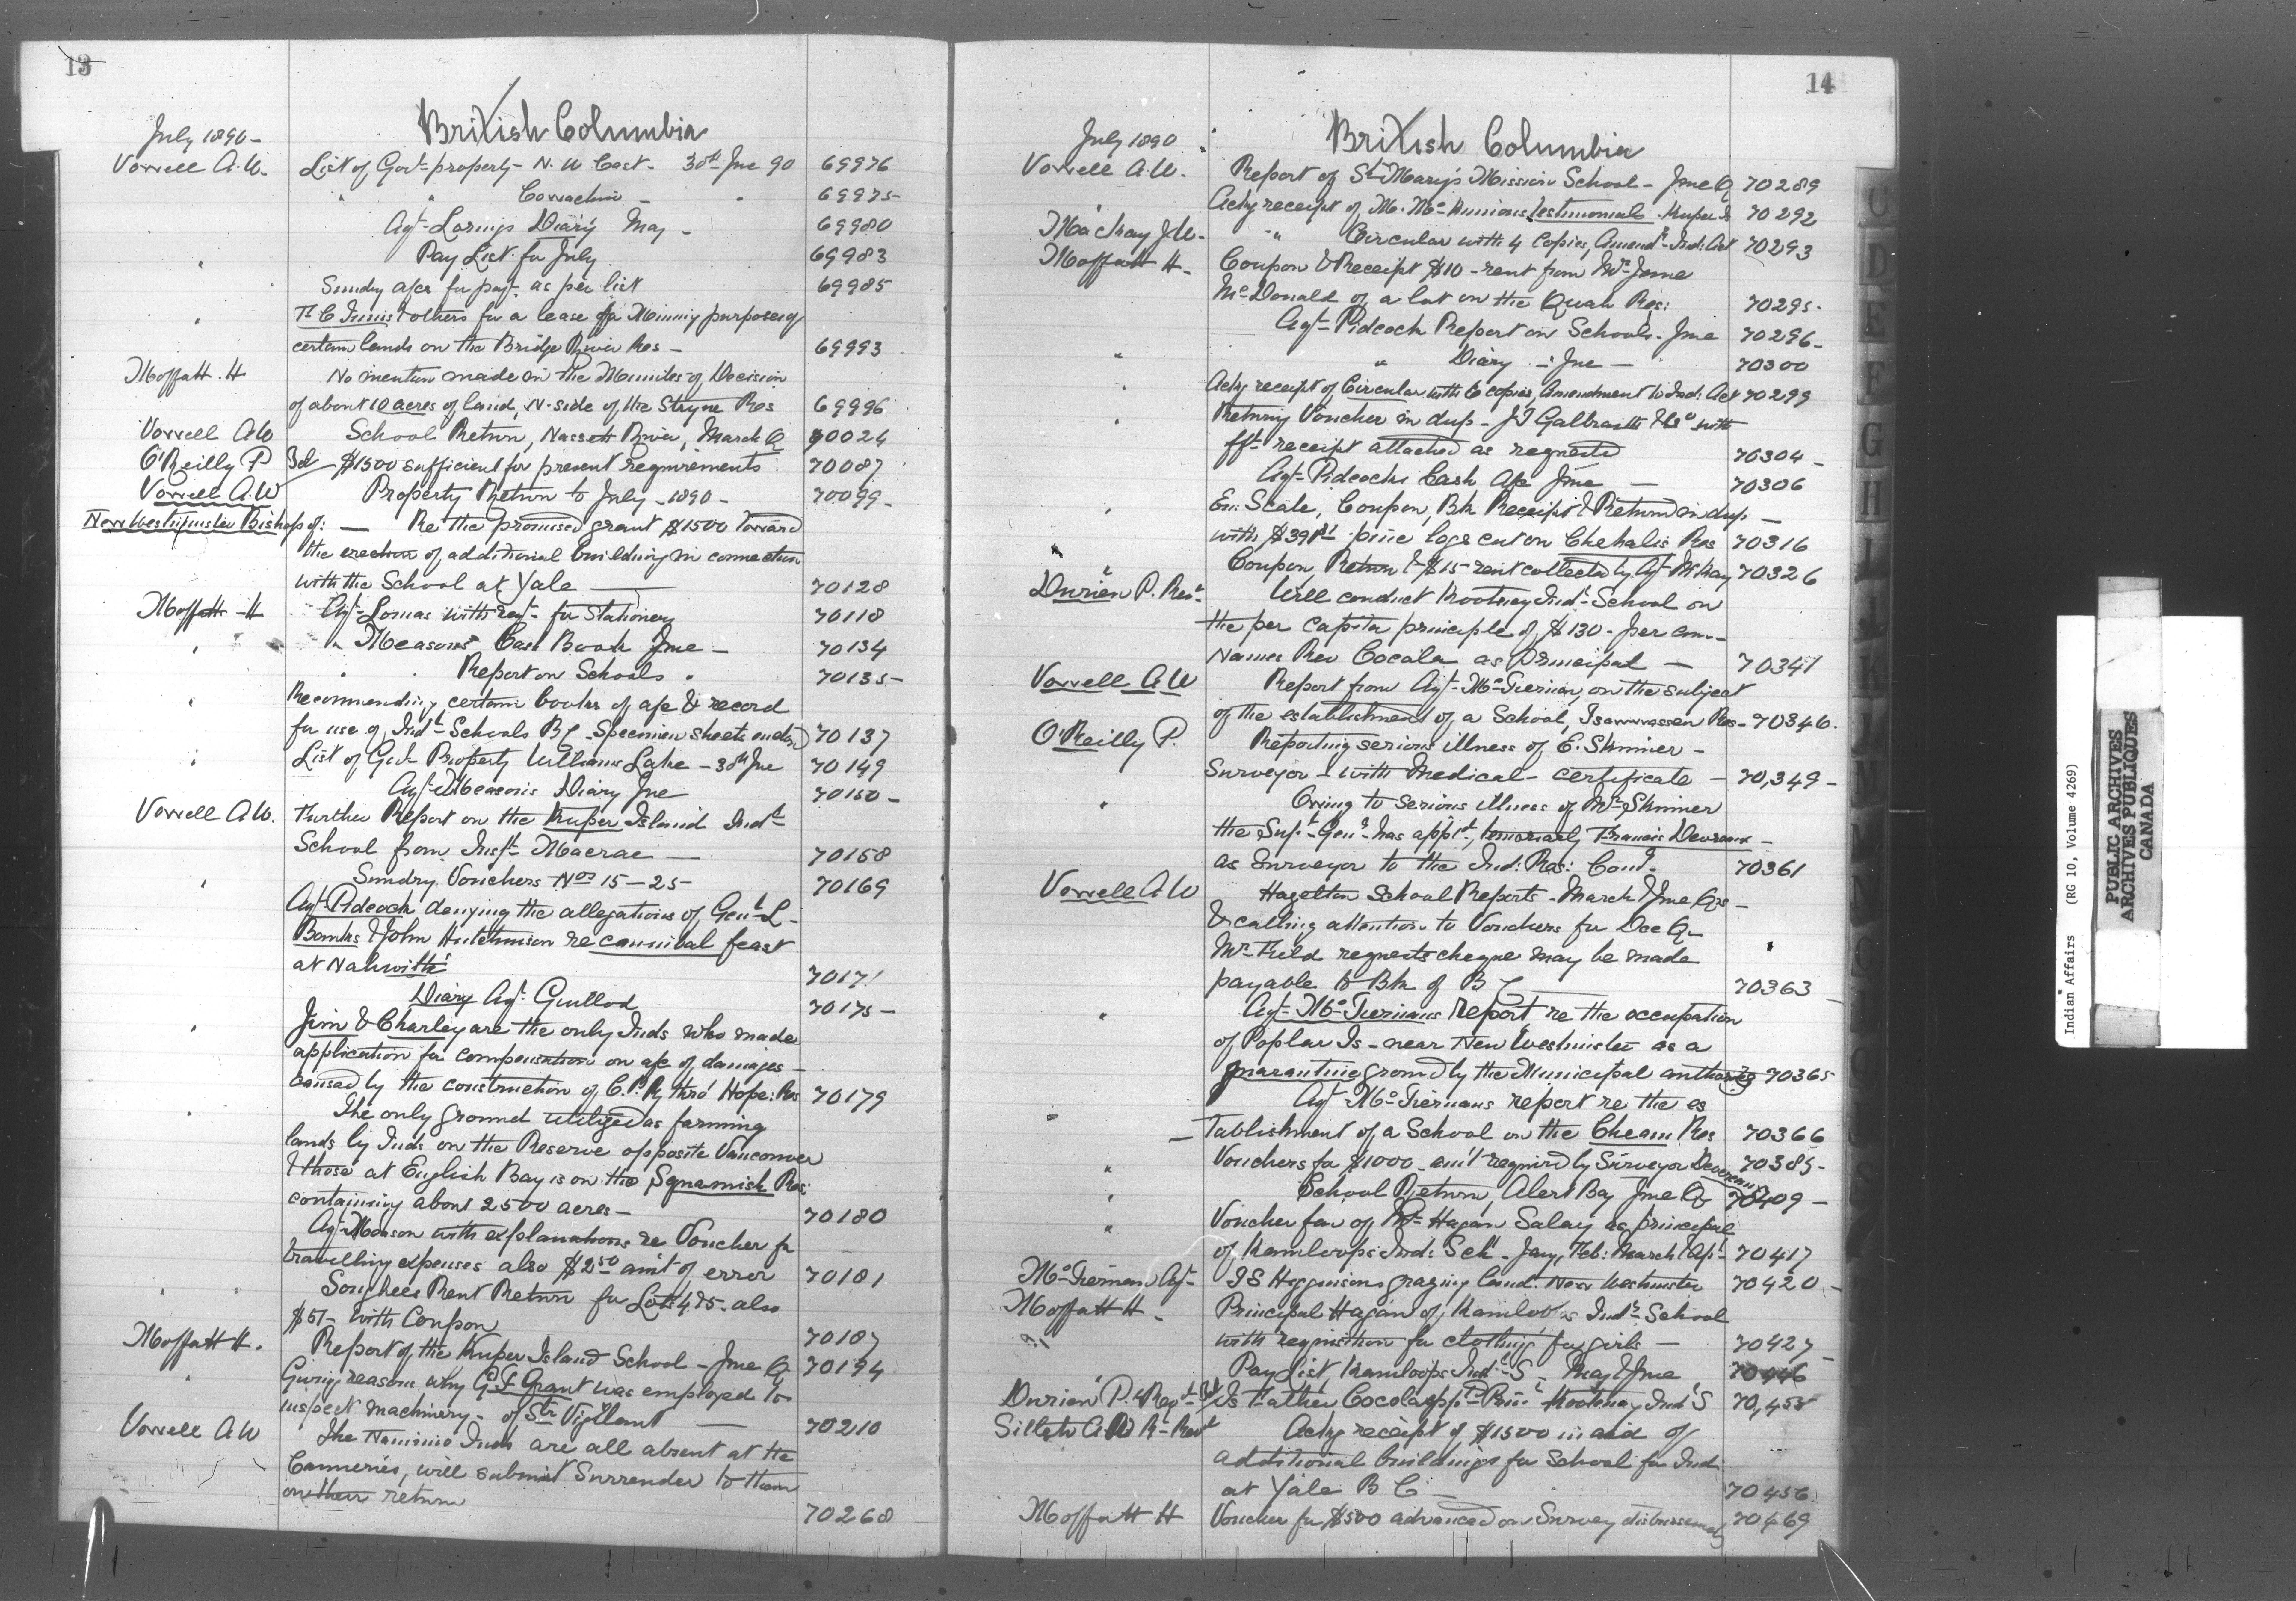 13
British Columbia
July 1890 -
Vowell A.W. List of Govt property - N.W Coast - 30th Jne 90 69976
" " Cowachin - " 69975
Agt Lorings Diary May - 69980
" Pay List for July 69983
Sundry a/cs for payt as per list 69985
" & others for a lease for Mining purposes of
certain lands on the Bridge River Res - 69993
Moffatt. H No mention made in the Minutes of Decision
of about 10 acres of land, N. side of the Stryne Res 69996
Vowell AW School Return, Nass River, March Q 70024
O'Reilly P $1500 sufficient for present requirements 70087
Vowell A.W Property Return to July - 1890 - 70099 -
New Westminster Bishop of: - Re the promised grant $1500 toward
the erection of additional building in connection
with the School at Yale 70128
Moffatt H Agt Lomas with reqt for Stationery 70118
" " Measons Cash Book Jne - 70134
" " Report on Schools " 70135 -
" Recommending certain books of a/c & record
for use of Indl Schools BC Specimen sheets 70137
" List of Govt Property Williams Lake - 30th Jne 70149
Agt Measons Diary Jne 70150 -
Vowell A.W. Further Report on the Kuper Island Indl
School from Inspt Macrae - 70158
" Sundry Vouchers Nos 15 - 25 - 70169
Agt Pidcock denying the allegations of Genl
& John Hutchinson re cannibal feast
at Nahwitti 70171
Diary Agt Guillod 70175 -
" Jim & Charley are the only Inds who made
application for compensation on a/c of damages -
caused by the construction of C.P.R, thro' Hope: Res 70179
" The only ground utilized as farming
lands by Inds on the Reserve opposite Vancouver
& those at English Bay is on the Squamish Res:
containing about 2500 acres - 70180
Agt Meason with explanations re Voucher for
travelling expenses also $2.50 amt of error 70181
" " Songhees Rent Return for Lots 4 & 5. also
$51- with Coupon 70187
Moffatt H. Report of the Kuper Island School - Jne Q 70194
" Giving reasons why G.F. Grant was employed to
inspect machinery - of Str Vigilant - 70210
Vowell A W The Nanimo Inds are all absent at the
Canneries, will submit Surrender to them
on their return 70268
14
British Columbia
July 1890
Vowell A.W. Report of St Mary's Mission School - Jne Q 70289
" Ackg receipt of testimonial Kuper Is 70292
MacKay J.W. " Circular with 4 copies, Amendt - Ind: Act 70293
Moffatt H - Coupon & Receipt $10 - rent from
McDonald of a lot on the Res: 70295 -
Agt Pidcock Report on Schools - Jne 70296 -
" " Diary - Jne - 70300
" Ackg receipt of Circular with 6 copies, Amendment to Ind: Act 70299
" Returning Voucher in dup - J.T Galbraith & Co with
receipt attached as requested 70304 -
Agt Pidcocks Cash A/c Jne - 70306
" Coupon, Bk Receipt & Return in dup -
with pine logs cut on Chehalis Res 70316
" Coupon, Return & $15 - rent collected by Agt McKay 70326
Durieu P. Revd Will conduct Kootenay Indl School on
the per capita principle of $130. per ann -
Names Rev Cocola as Principal - 70341
Vowell A.W Report from Agt McTiernan, on the subject
of the establishment of a School, Tsawwassen Res - 70346.
O'Reilly P. Reporting serious illness of E. Skinner -
Surveyor - with Medical - certificate - 70,349 -
" Owing to serious illness of Mr Skinner
the Supt Genl has appd, temporarily Francis Devereux -
as Surveyor to the Ind: Res: Comn. 70361
Vowell A W Hazelton School Reports - March & Jne Qrs -
& calling attention to Vouchers for Dec Q -
Mr Field requests cheque may be made
payable to Bk of B C 70363
" Agt McTiernans report re the occupation
of Poplar Is - near New Westminster as a
quarantine ground by the Municipal authorities 70365
" Agt McTiernans report re the es
- tablishment of a School on the Cheam Res 70366
" Vouchers for $1000 - amt required by Surveyor Devereux 70385 -
" School Return, Alert Bay Jne Q 70409 -
" Voucher fav of Mr Hagan Salary as principal
of Kamloops Ind: Schl - Jany, Feb: March & Apl 70417
McTiernan Agt J S Higginsons grazing land: New Westminster 70420 -
Moffatt H - Principal Hagan of Kamloops Indl School
with requisition for clothing for girls - 70427
Pay List, Kamloops Indl S - May & Jne 70446
Durieu P. Revd Is Father Cocola appd Prin: Kootenay Indl S 70,455
Ackg receipt of $1500 in aid of
additional buildings for School for Inds
at Yale B C - 70456
Moffatt H Voucher for $500 advanced on Survey disbursements 70469
C
D
E
F
G
H
Indian Affairs (RG 10, Volume 4269)
PUBLIC ARCHIVES
ARCHIVES PUBLIQUES
CANADA